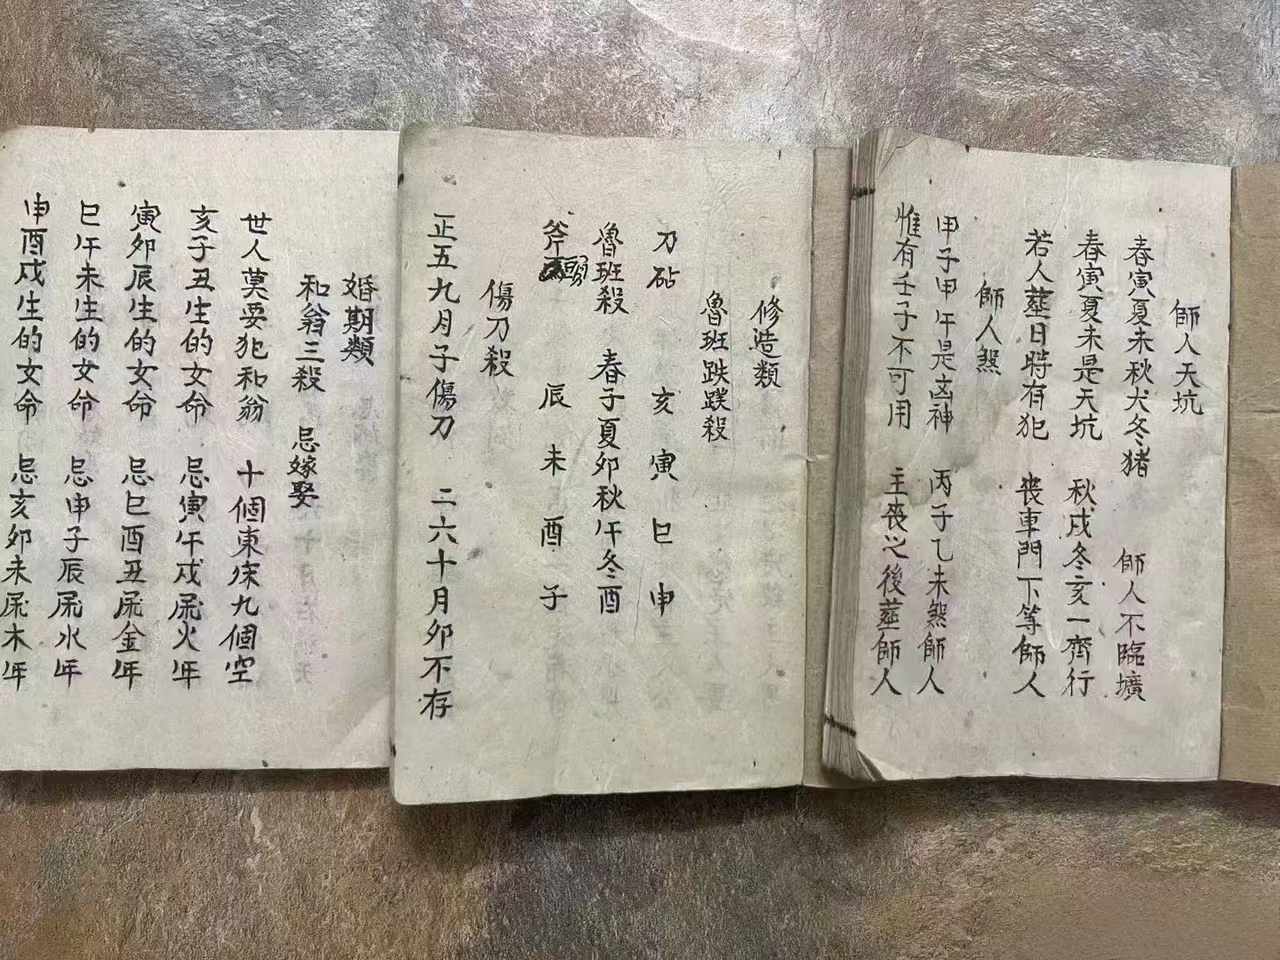 師人天坑
春寅夏未秋犬冬猪 師人不臨壙
春寅夏未是天坑 秋戌冬亥一齊行
若人塟日時有犯 喪車門下等師人
師人煞
甲子甲午是凶神 丙子乙未煞師人
惟有壬子不可用 主喪之後塟師人
修造類
魯班跌蹼殺
刀砧 亥 寅 巳 申
魯班殺 春子夏卯秋午冬酉
斧頭 辰 未 酉 子
傷刀殺
正五九月子傷刀 二六十月卯不存
婚期類
和翁三殺 忌嫁娶
世人莫要犯和翁 十個東床九個空
亥子丑生的女命 忌寅午戌屬火年
寅卯辰生的女命 忌巳酉丑屬金年
巳午未生的女命 忌申子辰屬水年
申酉戌生的女命 忌亥卯未屬木年